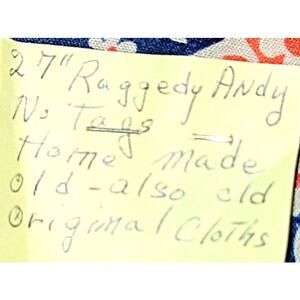 27" Raggedy Andy
No Tags
Home made
old - also old
Original Cloths